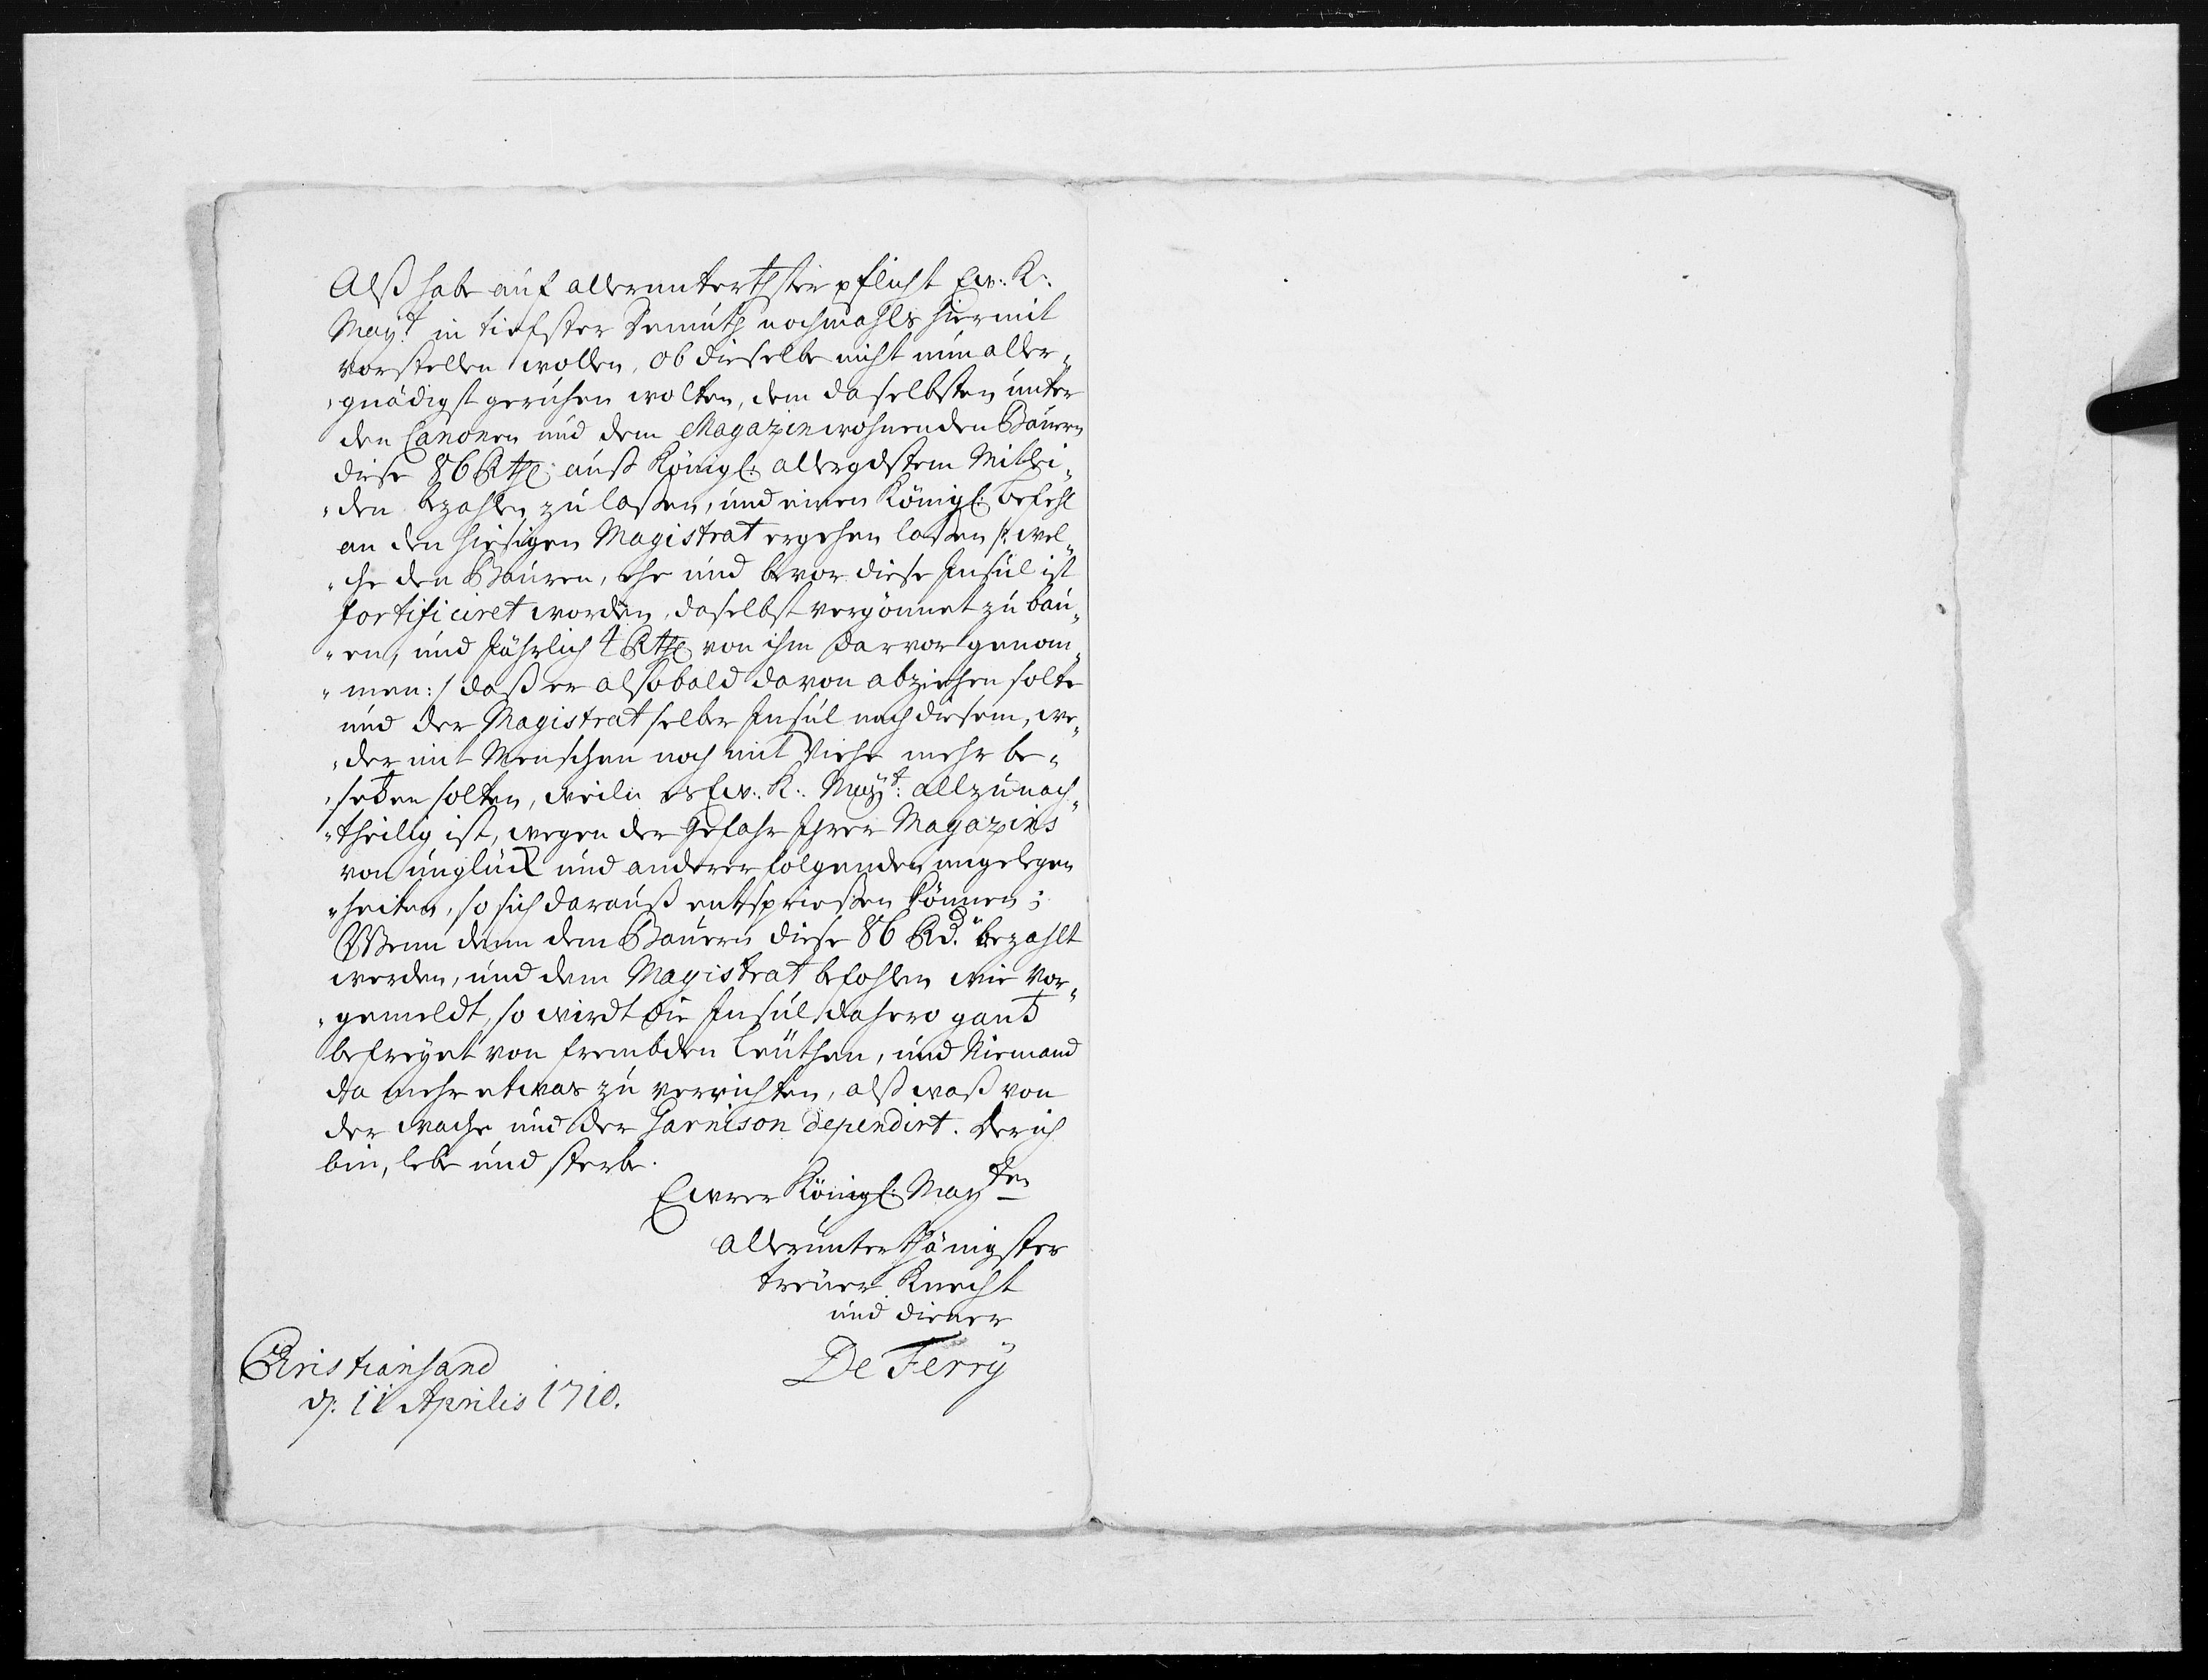 Alß habe auß allerunterthster pflicht Ew: K:
Mayt: in tiefster Demuth nochmahls hiermit
vorstellen wollen, ob dieselbe nicht nun aller„
„gnädigst geruhen wolten, dem daselbsten unter
den Canonen und dem Magazin wohnenden Bauern
diese 86 Rthl: auß Königl: allergdstem Mitlei„
„den bezahlen zu laßen, und einen Königl: befehl
an den hiesigen Magistrat ergehen laßen /: wel„
„che den Bauren, ehe und bevor diese Insul ist
fortificiret worden, daselbst vergönnet zu bau„
„en, und Jährlich 4 Rthl von ihm darvor genom„
„men :/ daß er alsobald davon abziehen solte
und der Magistrat selber Insul nach diesem, we„
„der mit Menschen noch mit Viehe mehr be„
„setzen solten, weiln es Ew: K: Mayt: allzu nach„
„theilig ist, wegen der Gefahr Ihrer Magazins
von unglück und anderer folgenden ungelegen
„heiten, so sich darauß entsprießen können;
Wenn denn dem Bauern diese 86 Rd. bezahlt
werden, und dem Magistrat befohlen wie vor„
„gemeldt, so wirdt die Insul dahero gantz
befreyet von frembden Leuthen, und Niemand
da mehr etwas zu verrichten, alß waß von
der Wache und der Garnison dependirt. Der ich
bin, lebe und sterbe.
Ewrer Königl: Mayten
allerunterthänigster
treuer Knecht
und diener
De Ferrÿ
Christiansand
d. 11 Aprilis 1710.